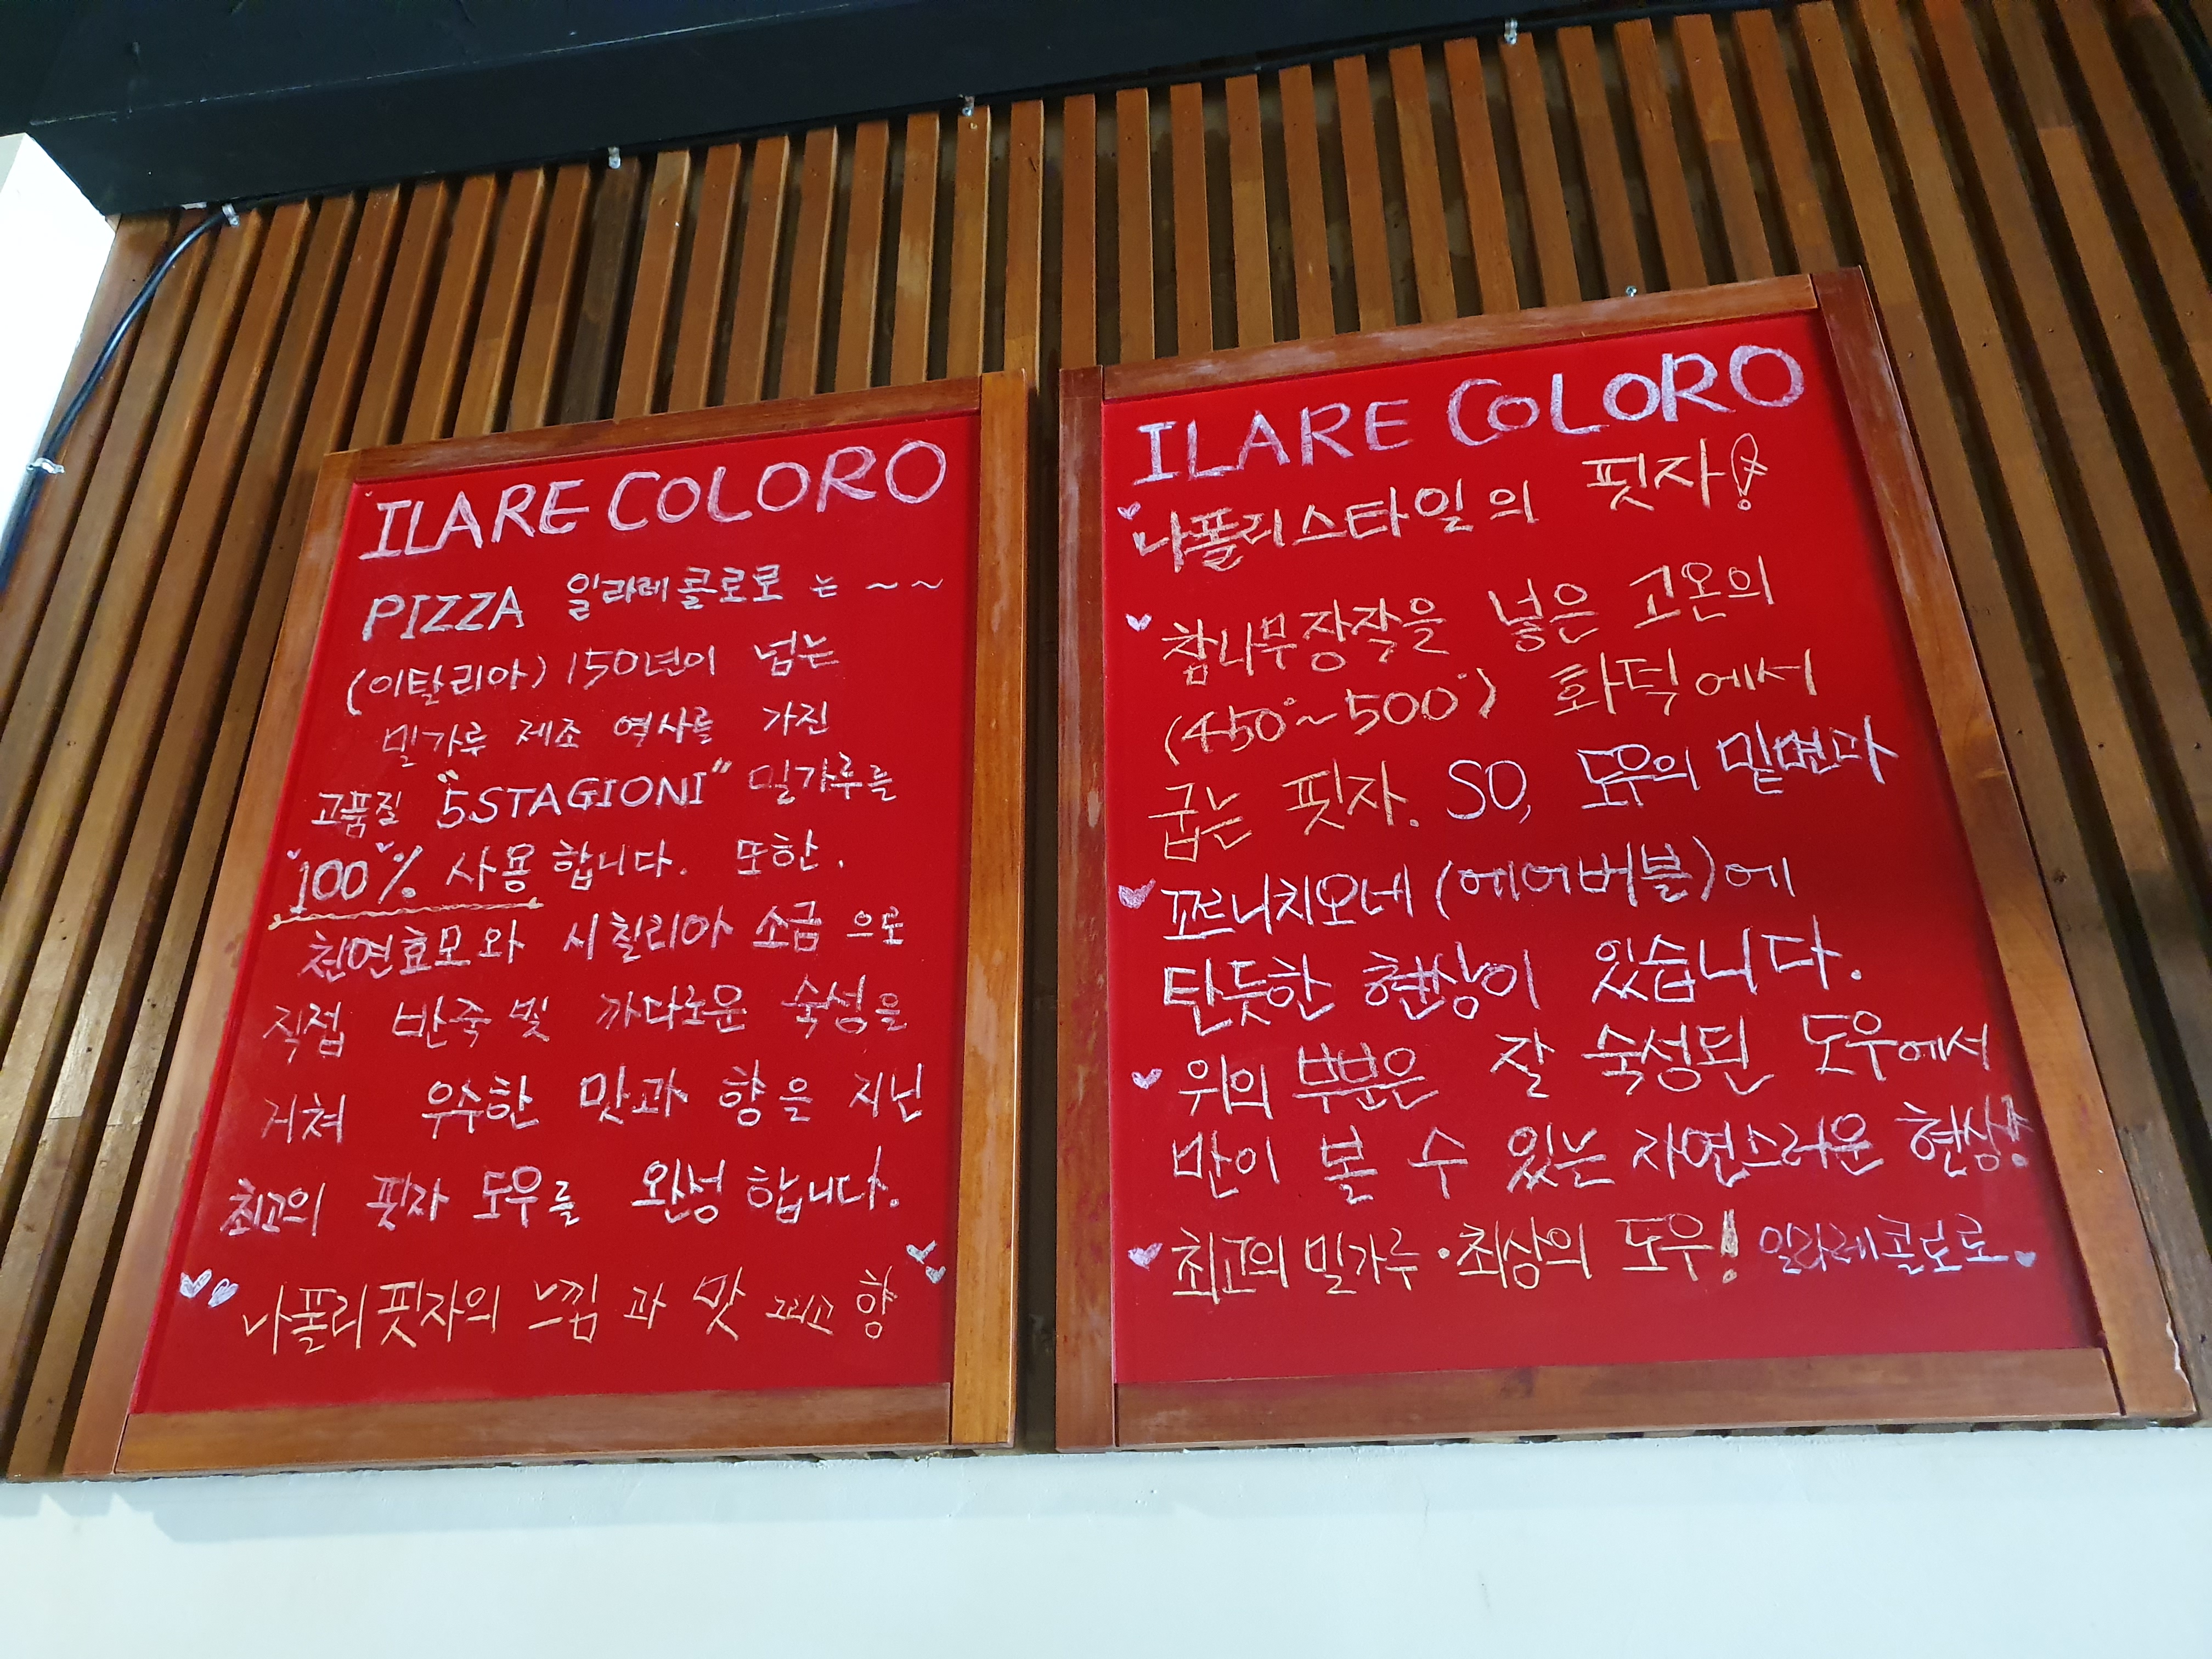 ILARE COLORO
PIZZA 일라레콜로로 는 ~ ~
(이탈리아) 150년이 넘는
밀가루 제조 역사를 가진
고품질 "5STAGIONI" 밀가루를
100% 사용 합니다. 또한.
천연효모와 시칠리아 소금 으로
직접 반죽 및 까다로운 숙성을
거쳐 우수한 맛과 향을 지닌
최고의 핏자 도우를 완성 합니다.
나폴리핏자의 느낌 과 맛 그리고 향
ILARE COLORO
나폴리스타일의 핏자!
참나무장작을 넣은 고온의
(450°~500°) 화덕에서
굽는 핏자. SO, 도우의 밑면과
꼬르니치오네 (에어버블)에
탄듯한 현상이 있습니다.
위의 부분은 잘 숙성된 도우에서
만이 볼 수 있는 자연스러운 현상!
최고의 밀가루·최상의 도우! 일라레콜로로.